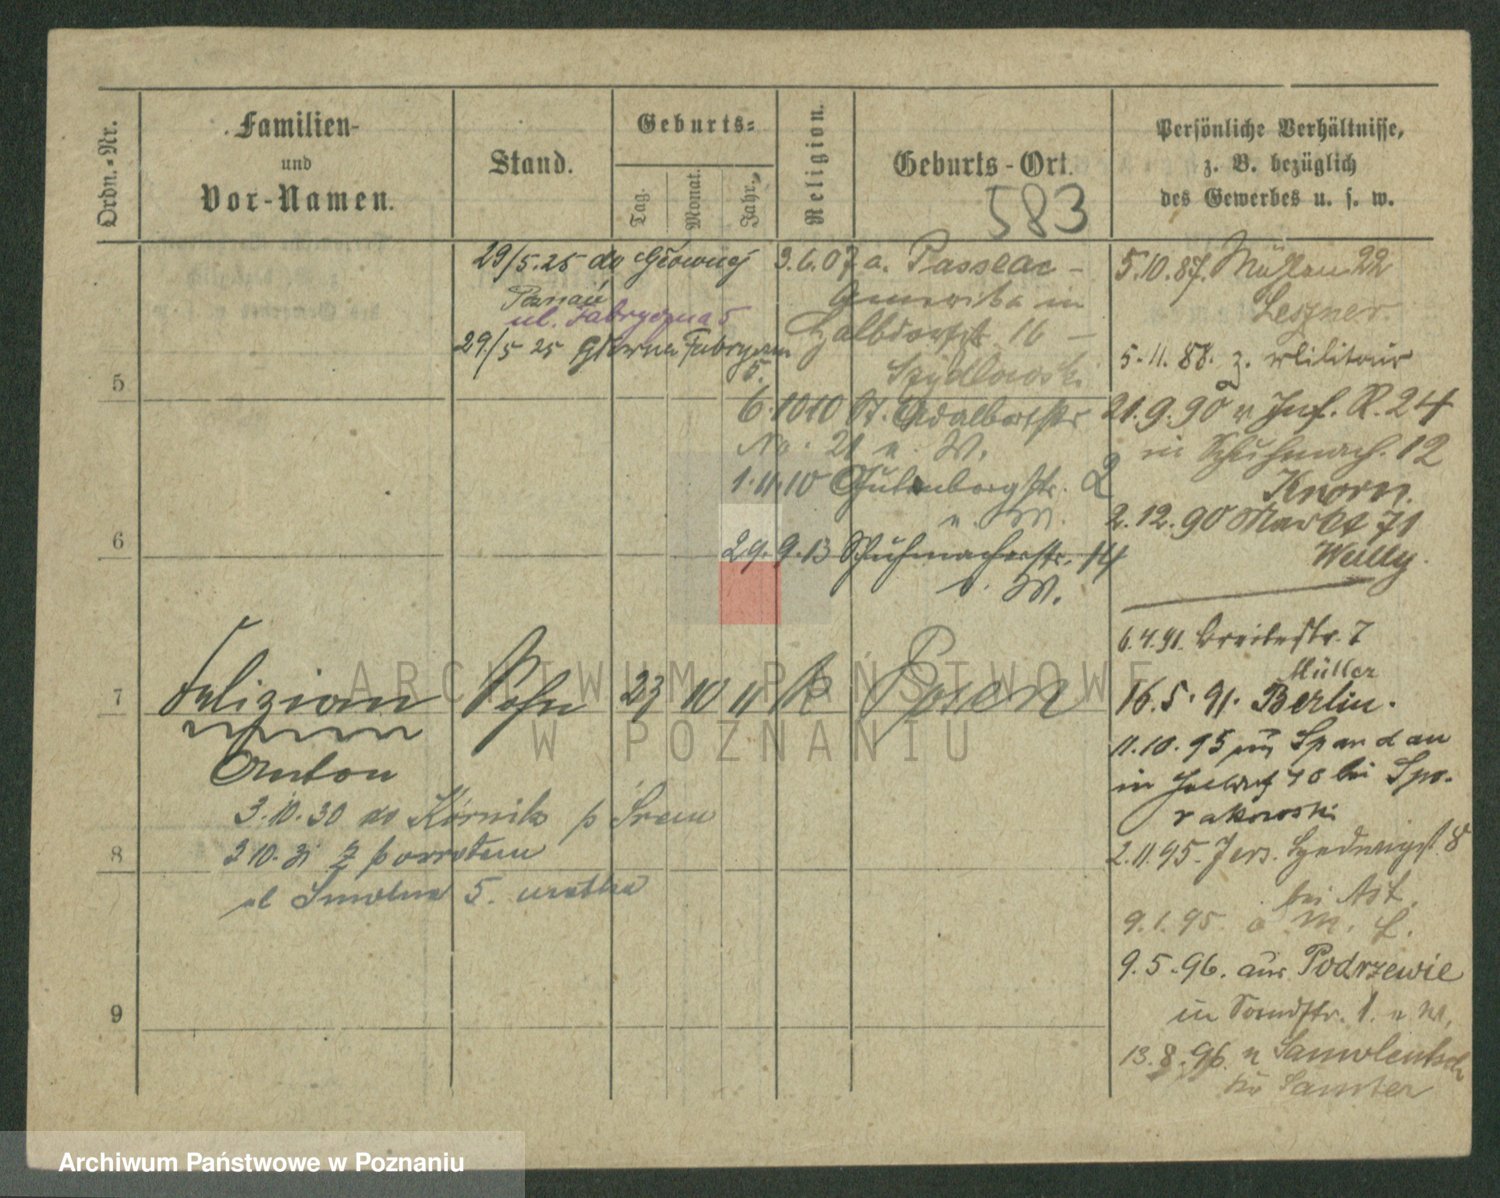 Ordn.-Nr.
Familien-
und
Vor-Namen.
Stand.
Geburts-
Tag.
Monat.
Jahr.
Religion.
Geburts-Ort.
583
Persönliche Verhältnisse,
z. B. bezüglich
des Gewerbes u. s. w.
29/5.25 do Głównej
Poznań
ul. Fabryczna 5
29./5 25 Główna Fabryczna
5.
3.6.07 a. Passeac-
Amerika in
Halbdorfstr 16 -
Szydlowski
6.10.10 St. Adalbertstr
No. 21 a. W.
1.11.10 Gutenbergstr. 2
a. W.
29.9.13 Schuhmacherstr. 14
a. W.
5
6
7
Felizian Sohn 23 10 11 k Posen
Anton
3.10.30 do Kórnik p Śrem
8
3 10. 31 z powrotem
ul Smolna 5.
9
5.10.87. Mühlen 22
Leszner.
5.11.88. z. Militair
21.9.90 v Inf. R. 24
in Schuhmach. 12
Knorn.
2.12.90 Markt 71
6.4.91. Breitestr. 7
Müller
16.5.91. Berlin.
11.10.95 aus Spandau
in 40 bei Spo-
rakowski
2.11.95. Jers. Hedwigst. 8
bei Ast.
9.1.95. a M. f.
9.5.96. aus Podrzewie
in Sandstr. 1. a W.
13.8.96. n Samolentsch
Kr Samter
ARCHIWUM PAŃSTWOWE
W POZNANIU
Archiwum Państwowe w Poznaniu